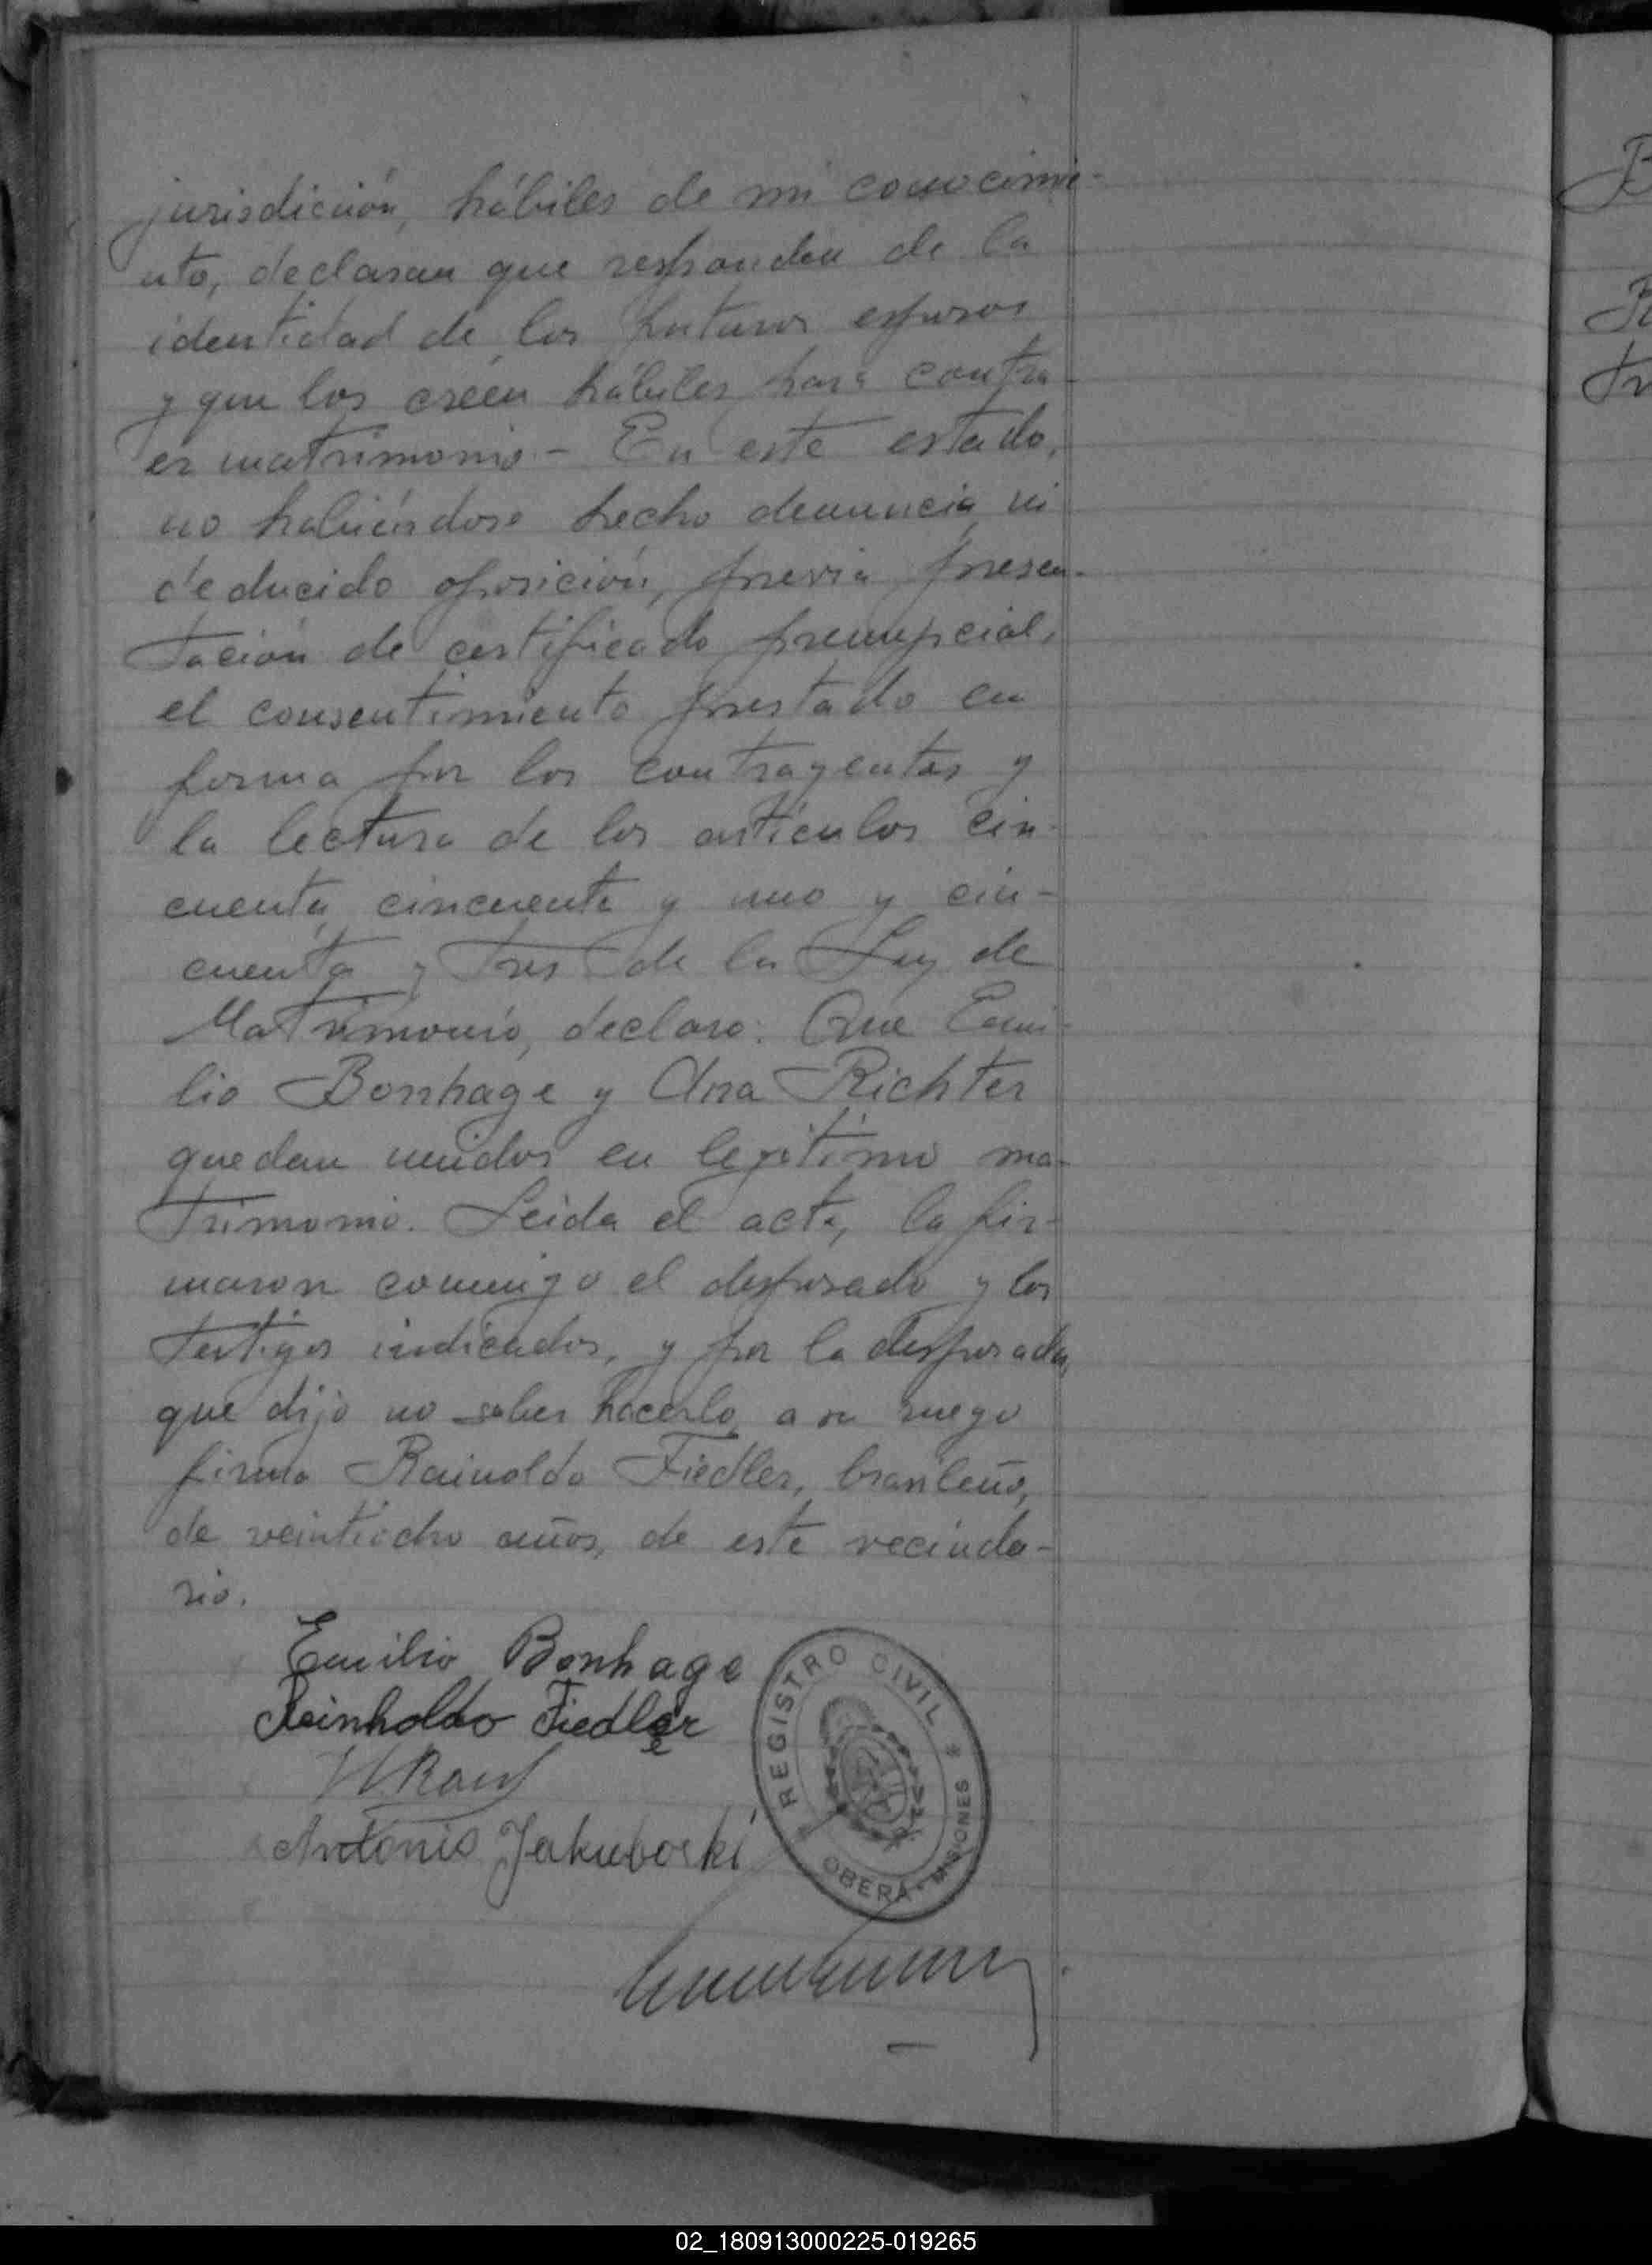 jurisdicción, hábiles de mi conocimie-
nto, declaran que responden de la
identidad de los futuros esposos
y que los créen hábiles para contra-
er matrimonio - En este estado,
no habiéndose hecho denuncia ni
deducido oposición, previa presen-
tación de certificado prenupcial,
el consentimiento prestado en
forma por los contrayentes y
la lectura de los artículos cin-
cuenta, cincuenta y uno y cin-
cuenta y tres de la Ley de
Matrimonio, declaro: Que Emi-
lio Bonhage y Ana Richter
quedan unidos en legítimo ma-
trimonio. Leida el acta, la fir-
maron conmigo el desposado y los
testigos indicados, y por la desposada,
que dijo no saber hacerlo, a su ruego
firma Rainoldo Fiedler, brasileño,
de veintiocho años, de este vecinda-
rio.
Emilio Bonhage
Reinholdo Fiedler
Antonio Jakuboski
REGISTRO CIVIL
OBERÁ - MISIONES
B
R
Tr
02_180913000225-019265